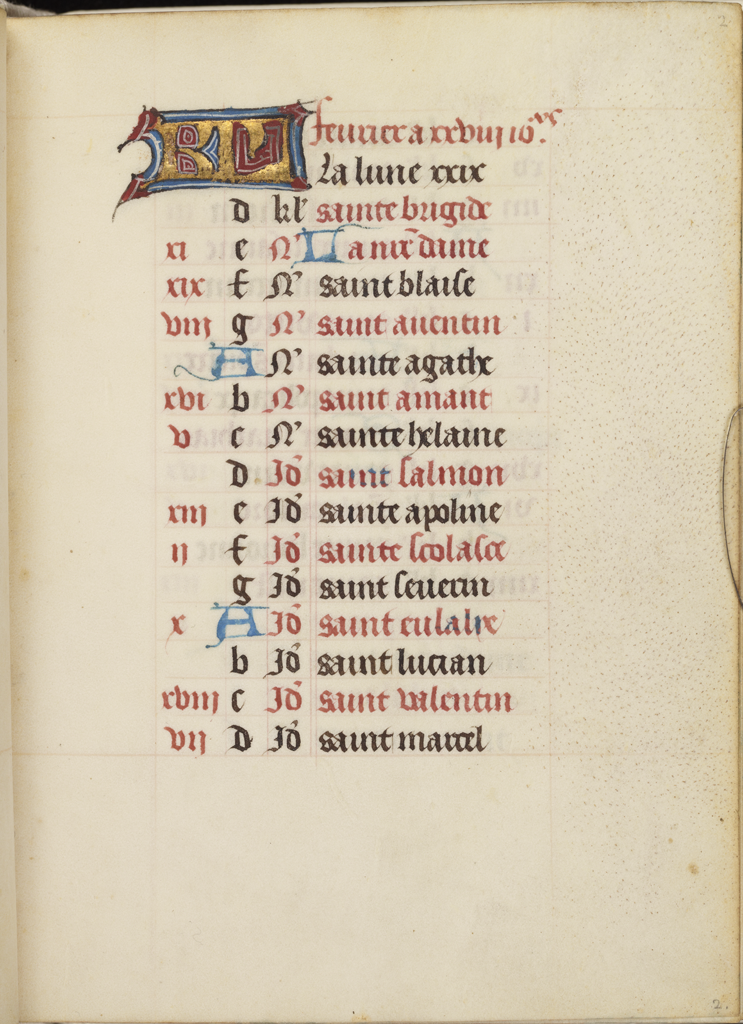 2
KL feurier a xxviii iours
La lune xxix
d kl' sainte brigide
xi e N' La nr̄e dame
xix f N' saint blaise
viii g N' saint auentin
A N' sainte agathe
xvi b N' saint amant
v c N' sainte helaine
D Id' saint salmon
xiii e Id' sainte apoline
ii f Id' sainte scolasce
g Id' saint seuerin
x A Id' saint eulalie
b Id' saint lucian
xviii c Id' saint valentin
vii D Id' saint marcel
2.